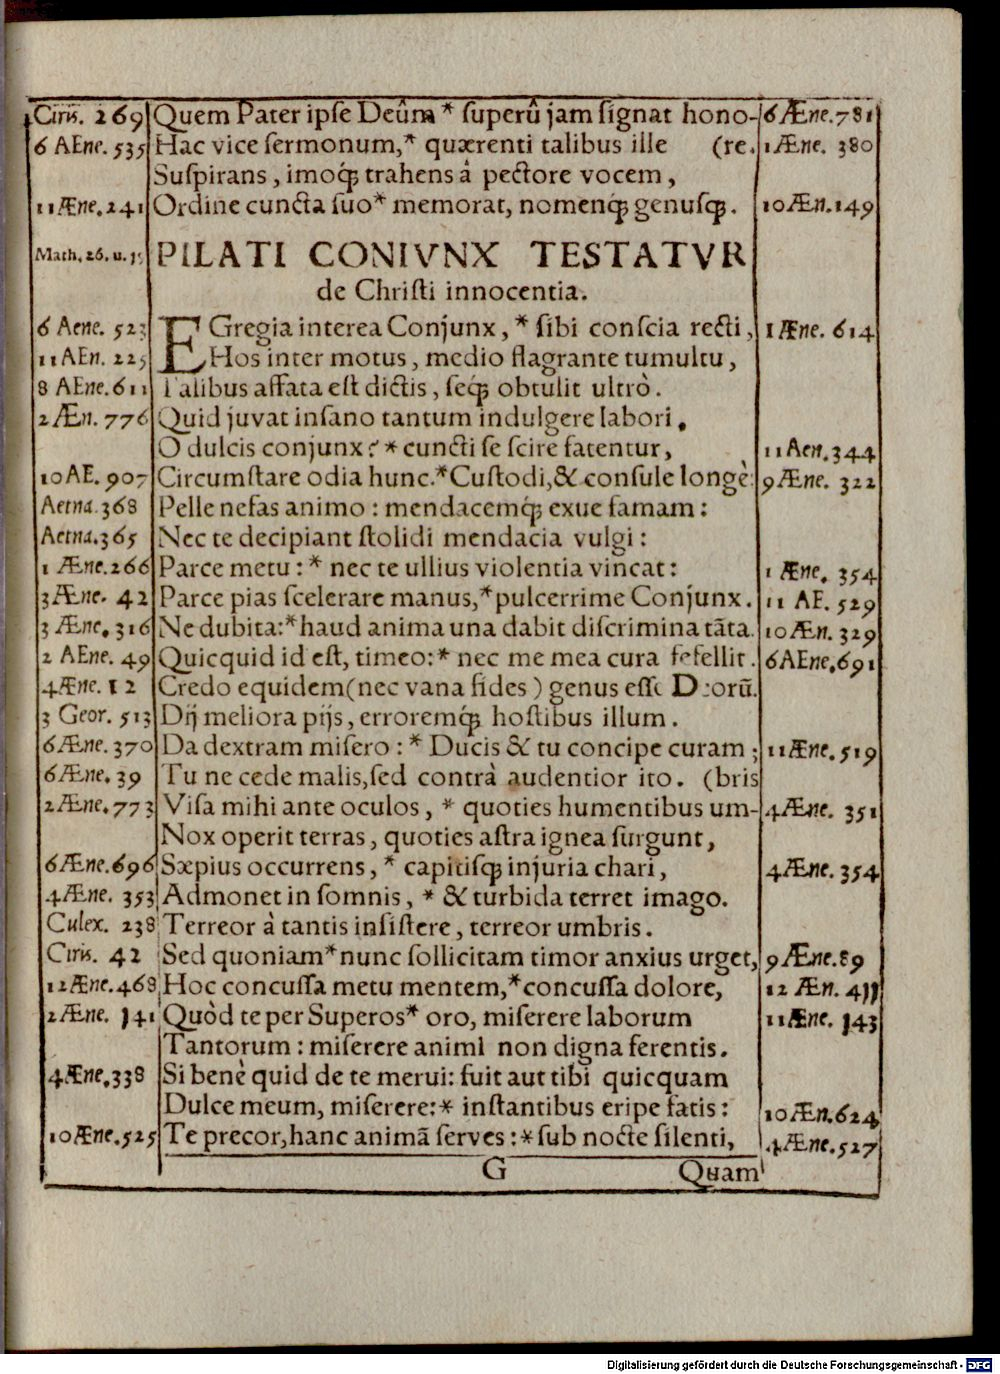 Ciris. 269 Quem Pater ipse Deûm * superû jam signat hono- 6 Æne. 781
6 AEne. 535 Hac vice sermonum,* quærenti talibus ille (re. 1 Æne. 380
Suspirans, imoq; trahens â pectore vocem,
11 Æne. 241 Ordine cuncta suo* memorat, nomenq; genusq;. 10 Æn. 149
Math. 26. u. PILATI CONIVNX TESTATVR
de Christi innocentia.
6 Aene. 523 EGregia interea Conjunx, * sibi conscia recti, 1 Æne. 614
11 AEn. 225 Hos inter motus, medio flagrante tumultu,
8 AEne. 611 Talibus affata est dictis, seq; obtulit ultrò.
2 Æn. 776 Quid juvat insano tantum indulgere labori,
O dulcis conjunx? * cuncti se scire fatentur, 11 Aen. 344
10 AE. 907 Circumstare odia hunc.* Custodi, & consule longè: 9 Æne. 322
Aetna. 368 Pelle nefas animo: mendacemq; exue famam:
Aetna. 365 Nec te decipiant stolidi mendacia vulgi:
1 Æne. 266 Parce metu: * nec te ullius violentia vincat: 1 Æne. 354
3 Æne. 42 Parce pias scelerare manus,* pulcerrime Conjunx. 11 AE. 529
3 Æne. 316 Ne dubita:* haud anima una dabit discrimina tãta. 10 Æn. 329
2 AEne. 49 Quicquid id est, timeo:* nec me mea cura fefellit. 6 AEne. 691
4 Æne. 12 Credo equidem (nec vana fides) genus esse Deorũ.
3 Geor. 513 Dij meliora pijs, erroremq; hostibus illum.
6 Æne. 370 Da dextram misero: * Ducis & tu concipe curam; 11 Æne. 519
6 Æne. 39 Tu ne cede malis, sed contrà audentior ito. (bris
2 Æne. 773 Visa mihi ante oculos, * quoties humentibus um- 4 Æne. 351
Nox operit terras, quoties astra ignea surgunt,
6 Æne. 696 Sæpius occurrens, * capitisq; injuria chari, 4 Æne. 354
4 Æne. 353 Admonet in somnis, * & turbida terret imago.
Culex. 238 Terreor à tantis insistere, terreor umbris.
Ciris. 42 Sed quoniam* nunc sollicitam timor anxius urget, 9 Æne. 89
12 Æne. 468 Hoc concussa metu mentem,* concussa dolore, 12 Æn. 411
2 Æne. 141 Quòd te per Superos* oro, miserere laborum 11 Æne. 143
Tantorum: miserere animi non digna ferentis.
4 Æne. 338 Si benè quid de te merui: fuit aut tibi quicquam
Dulce meum, miserere:* instantibus eripe fatis: 10 Æn. 624
10 Æne. 525 Te precor, hanc animã serves:* sub nocte silenti, 4 Æne. 527
G Quam
Digitalisierung gefördert durch die Deutsche Forschungsgemeinschaft - DFG